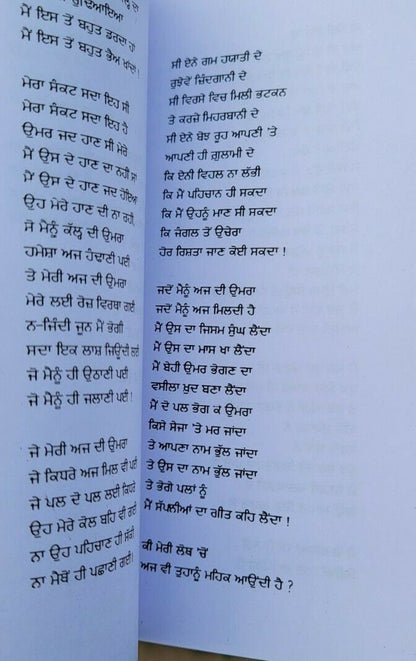 ਮੈਂ ਇਸ ਤੋਂ ਬਹੁਤ ਡਰਦਾ ਹਾਂ
ਮੈਂ ਇਸ ਤੋਂ ਬਹੁਤ ਭੈਅ ਖਾਂਦਾ !
ਮੇਰਾ ਸੰਕਟ ਸਦਾ ਇਹ ਸੀ
ਮੇਰਾ ਸੰਕਟ ਸਦਾ ਇਹ ਹੈ
ਉਮਰ ਜਦ ਹਾਣ ਸੀ ਮੇਰੇ
ਮੈਂ ਉਸ ਦੇ ਹਾਣ ਦਾ ਨਹੀਂ ਸਾਂ
ਮੈਂ ਉਸ ਦੇ ਹਾਣ ਜਦ ਹੋਇਆ
ਉਹ ਮੇਰੇ ਹਾਣ ਦੀ ਨਾ ਰਹੀ,
ਸੋ ਮੈਨੂੰ ਕੱਲ੍ਹ ਦੀ ਉਮਰਾ
ਹਮੇਸ਼ਾ ਅਜ ਹੰਢਾਣੀ ਪਈ
ਤੇ ਮੇਰੀ ਅਜ ਦੀ ਉਮਰਾ
ਮੇਰੇ ਲਈ ਰੋਜ਼ ਵਿਰਥਾ ਗਈ
ਨ-ਜਿੰਦੀ ਜੂਨ ਮੈਂ ਭੋਗੀ
ਸਦਾ ਇਕ ਲਾਸ਼ ਜਿਉਂਦੀ ਲਈ
ਜੋ ਮੈਨੂੰ ਹੀ ਉਠਾਣੀ ਪਈ
ਜੋ ਮੈਨੂੰ ਹੀ ਜਲਾਣੀ ਪਈ !
ਜੇ ਮੇਰੀ ਅਜ ਦੀ ਉਮਰਾ
ਜੇ ਕਿਧਰੇ ਅਜ ਮਿਲ ਵੀ ਪਈ
ਜੇ ਪਲ ਦੋ ਪਲ ਲਈ ਕਿਧਰੇ
ਉਹ ਮੇਰੇ ਕੋਲ ਬਹਿ ਵੀ ਗਈ
ਨਾ ਉਹ ਪਹਿਚਾਣ ਹੀ ਸੱਕੀ
ਨਾ ਮੈਥੋਂ ਹੀ ਪਛਾਣੀ ਗਈ।
ਸੀ ਏਨੇ ਗਮ ਹਯਾਤੀ ਦੇ
ਰੁਝੇਵੇਂ ਜ਼ਿੰਦਗਾਨੀ ਦੇ
ਸੀ ਵਿਰਸੇ ਵਿਚ ਮਿਲੀ ਭਟਕਨ
ਤੇ ਕਰਜ਼ੇ ਮਿਹਰਬਾਨੀ ਦੇ
ਸੀ ਏਨੇ ਬੋਝ ਰੂਹ ਆਪਣੀ 'ਤੇ
ਆਪਣੀ ਹੀ ਗੁਲਾਮੀ ਦੇ
ਕਿ ਏਨੀ ਵਿਹਲ ਨਾ ਲੱਭੀ
ਕਿ ਮੈਂ ਪਹਿਚਾਨ ਹੀ ਸਕਦਾ
ਕਿ ਮੈਂ ਉਹਨੂੰ ਮਾਣ ਸੀ ਸਕਦਾ
ਕਿ ਜੰਗਲ ਤੋਂ ਉਚੇਰਾ
ਹੋਰ ਰਿਸ਼ਤਾ ਜਾਣ ਕੋਈ ਸਕਦਾ !
ਜਦੋਂ ਮੈਨੂੰ ਅਜ ਦੀ ਉਮਰਾ
ਜਦੋਂ ਮੈਨੂੰ ਅਜ ਮਿਲਦੀ ਹੈ
ਮੈਂ ਉਸ ਦਾ ਜਿਸਮ ਸੁੰਘ ਲੈਂਦਾ
ਮੈਂ ਉਸ ਦਾ ਮਾਸ ਖਾ ਲੈਂਦਾ
ਮੈਂ ਬੇਹੀ ਉਮਰ ਭੋਗਣ ਦਾ
ਵਸੀਲਾ ਖ਼ੁਦ ਬਣਾ ਲੈਂਦਾ
ਮੈਂ ਦੋ ਪਲ ਭੋਗ ਕੇ ਉਮਰਾ
ਕਿਸੇ ਸੇਜਾ 'ਤੇ ਮਰ ਜਾਂਦਾ
ਤੇ ਆਪਣਾ ਨਾਮ ਭੁੱਲ ਜਾਂਦਾ
ਤੇ ਉਸ ਦਾ ਨਾਮ ਭੁੱਲ ਜਾਂਦਾ
ਤੇ ਭੋਗੇ ਪਲਾਂ ਨੂੰ
ਮੈਂ ਸੱਪਲੀਆਂ ਦਾ ਗੀਤ ਕਹਿ ਲੈਂਦਾ !
ਕੀ ਮੇਰੀ ਲੋਥ 'ਚੋਂ
ਅਜ ਵੀ ਤੁਹਾਨੂੰ ਮਹਿਕ ਆਉਂਦੀ ਹੈ ?